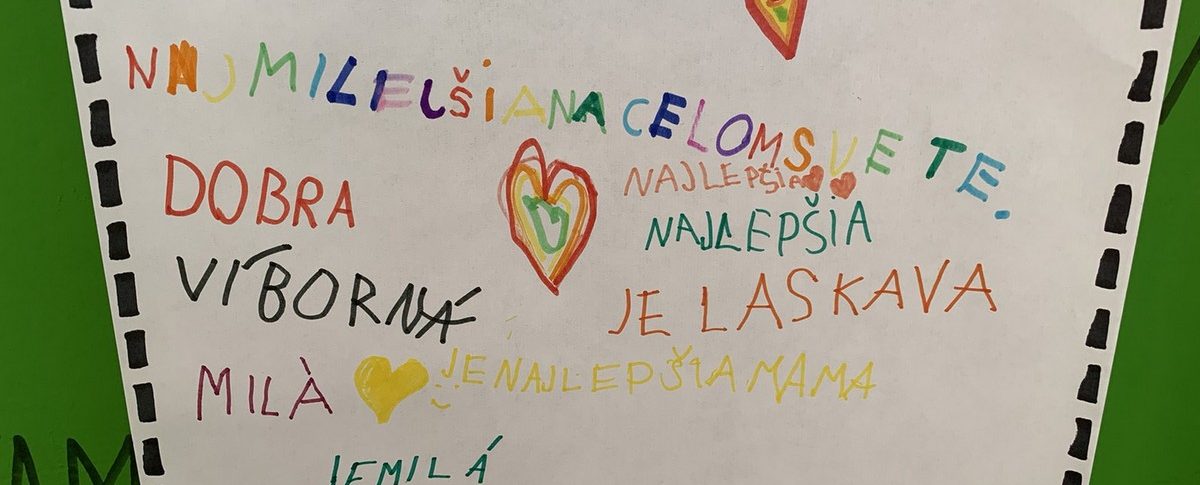 NAJMILEJŠIANACELOMSVETE.
DOBRA
NAJLEPŠIA
NAJLEPŠIA
VÍBORNÁ
JE LASKAVA
MILÀ
JENAJLEPŠIAMAMA
JEMILÁ
AM